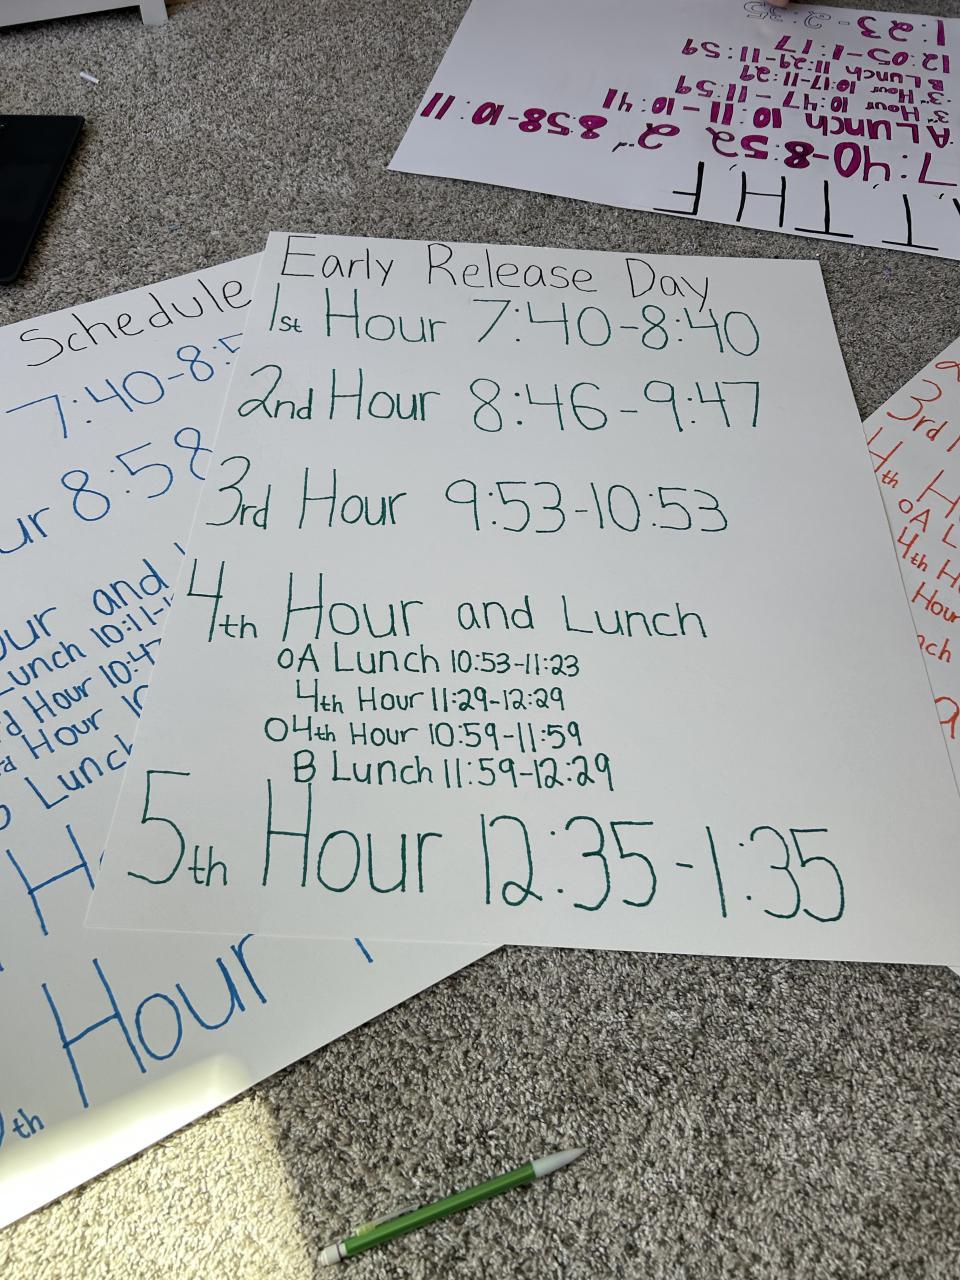 Early Release Day
1st Hour 7:40-8:40
2nd Hour 8:46-9:47
3rd Hour 9:53-10:53
4th Hour and Lunch
OA Lunch 10:53-11:23
4th Hour 11:29-12:29
O4th Hour 10:59-11:59
B Lunch 11:59-12:29
5th Hour 12:35-1:35
Schedule
7:40-8:5
ur 8:58
our and
Lunch 10:11-1
d Hour 10:47
rd Hour 10
Lunch
H
Hour
th
T TH F
7:40-8:52 2 8:58-10:11
A Lunch 10:11-10:41
3rd Hour 10:47-11:59
3rd Hour 10:17-11:29
B Lunch 11:29-11:59
12:05-1:17
1:23-2:35
3rd
4th H
OA L
4th H
Hour
nch